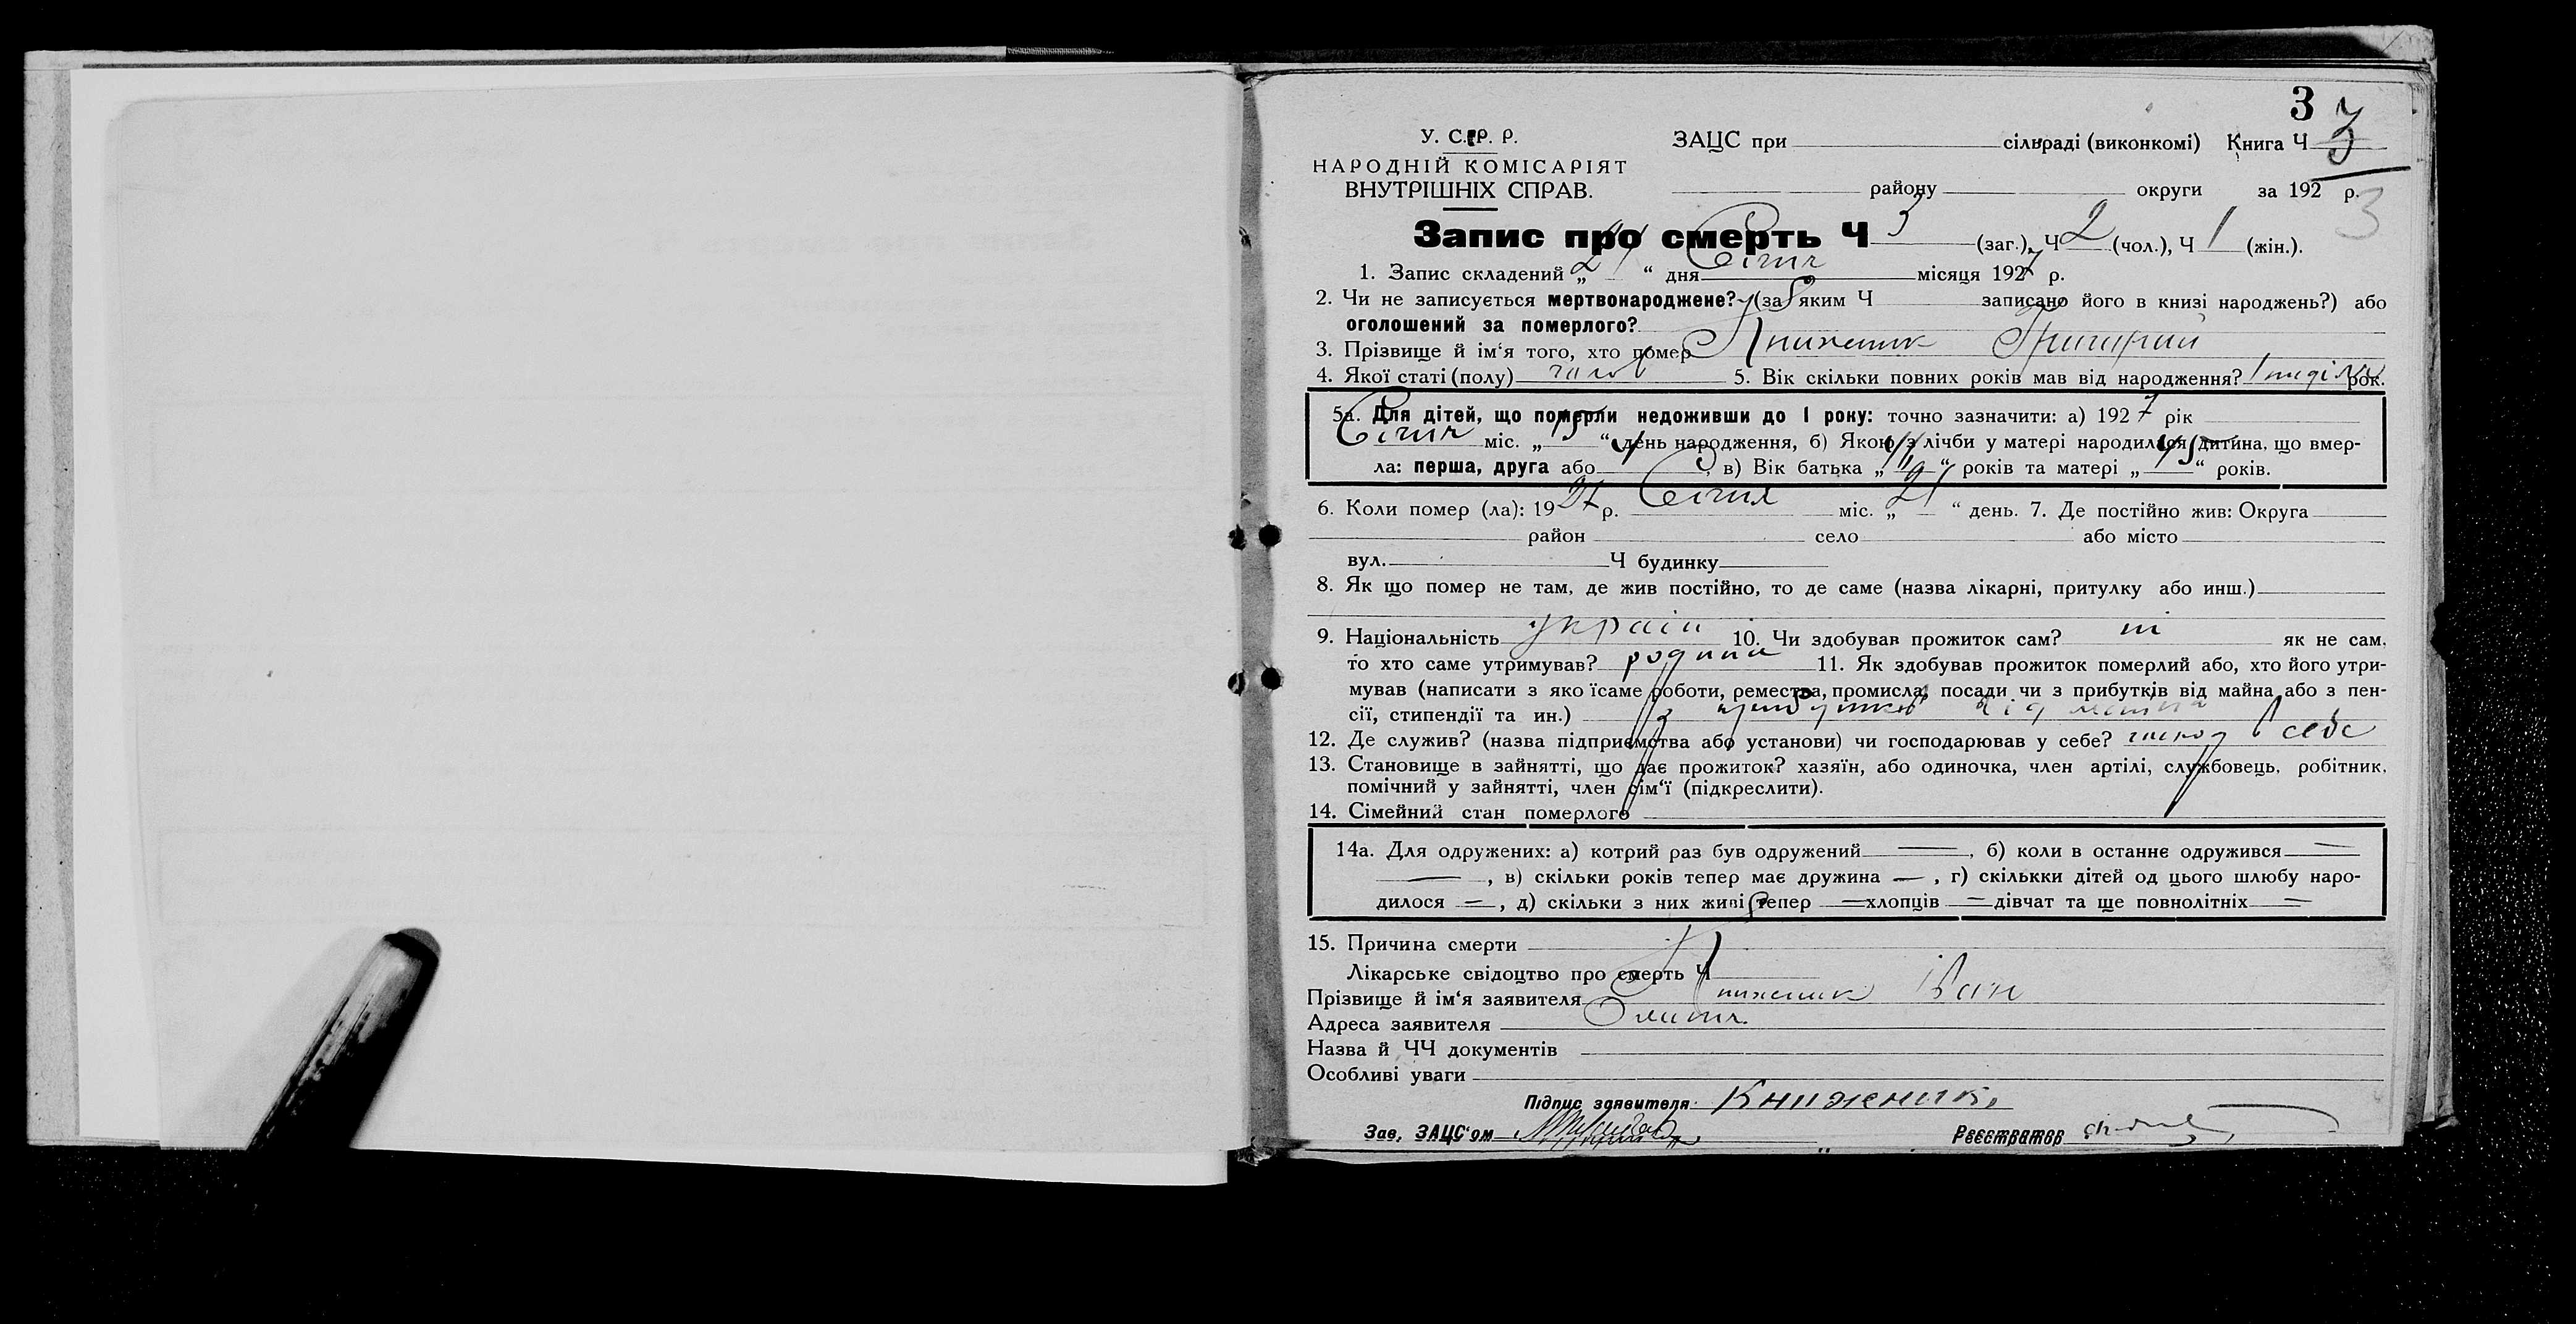 3
3
У. С. Р. Р.
ЗАЦС при сільраді (виконкомі) Книга Ч
НАРОДНІЙ КОМІСАРІЯТ
ВНУТРІШНІХ СПРАВ.
району округи за 192 р.
3
Запис про смерть Ч 3 (заг.), Ч 2 (чол.), Ч 1 (жін.).
1. Запис складений „ 21 “ дня Січня місяця 1927 р.
2. Чи не записується мертвонароджене? (за яким Ч записано його в книзі народжень?) або
оголошений за померлого?
3. Прізвище й ім‘я того, хто помер Книжник Григирий
4. Якої статі (полу) чолов 5. Вік скільки повних років мав від народження? 1 неділя рок.
5а. Для дітей, що померли недоживши до 1 року: точно зазначити: а) 1927 рік
Січня міс. „ 15 “ день народження, б) Якою з лічби у матері народилася дитина, що вмер-
ла: перша, друга або , в) Вік батька „ “ років та матері „ 45 “ років.
6. Коли помер (ла): 1927 р. Січня міс. „ 21 “ день. 7. Де постійно жив: Округа
район село або місто
вул. Ч будинку
8. Як що помер не там, де жив постійно, то де саме (назва лікарні, притулку або инш.)
9. Національність україн 10. Чи здобував прожиток сам? ні як не сам,
то хто саме утримував? родина 11. Як здобував прожиток померлий або, хто його утри-
мував (написати з яко їсаме роботи, ремества, промисла, посади чи з прибутків від майна або з пен-
сії, стипендії та ин.) з прибутков від майна
12. Де служив? (назва підприємства або установи) чи господарював у себе? господ в себе
13. Становище в зайнятті, що дає прожиток? хазяїн, або одиночка, член артілі, службовець, робітник,
помічний у зайнятті, член сім‘ї (підкреслити).
14. Сімейний стан померлого
14а. Для одружених: а) котрий раз був одружений — , б) коли в останнє одружився —
— , в) скільки років тепер має дружина — , г) скількки дітей од цього шлюбу наро-
дилося — , д) скільки з них живі тепер — хлопців — дівчат та ще повнолітніх —
15. Причина смерти
Лікарське свідоцтво про смерть Ч
Прізвище й ім‘я заявителя Книжник Іван
Адреса заявителя
Назва й ЧЧ документів
Особливі уваги
Підпис заявителя Книжник
Зав. ЗАЦС‘ом Реєстратор